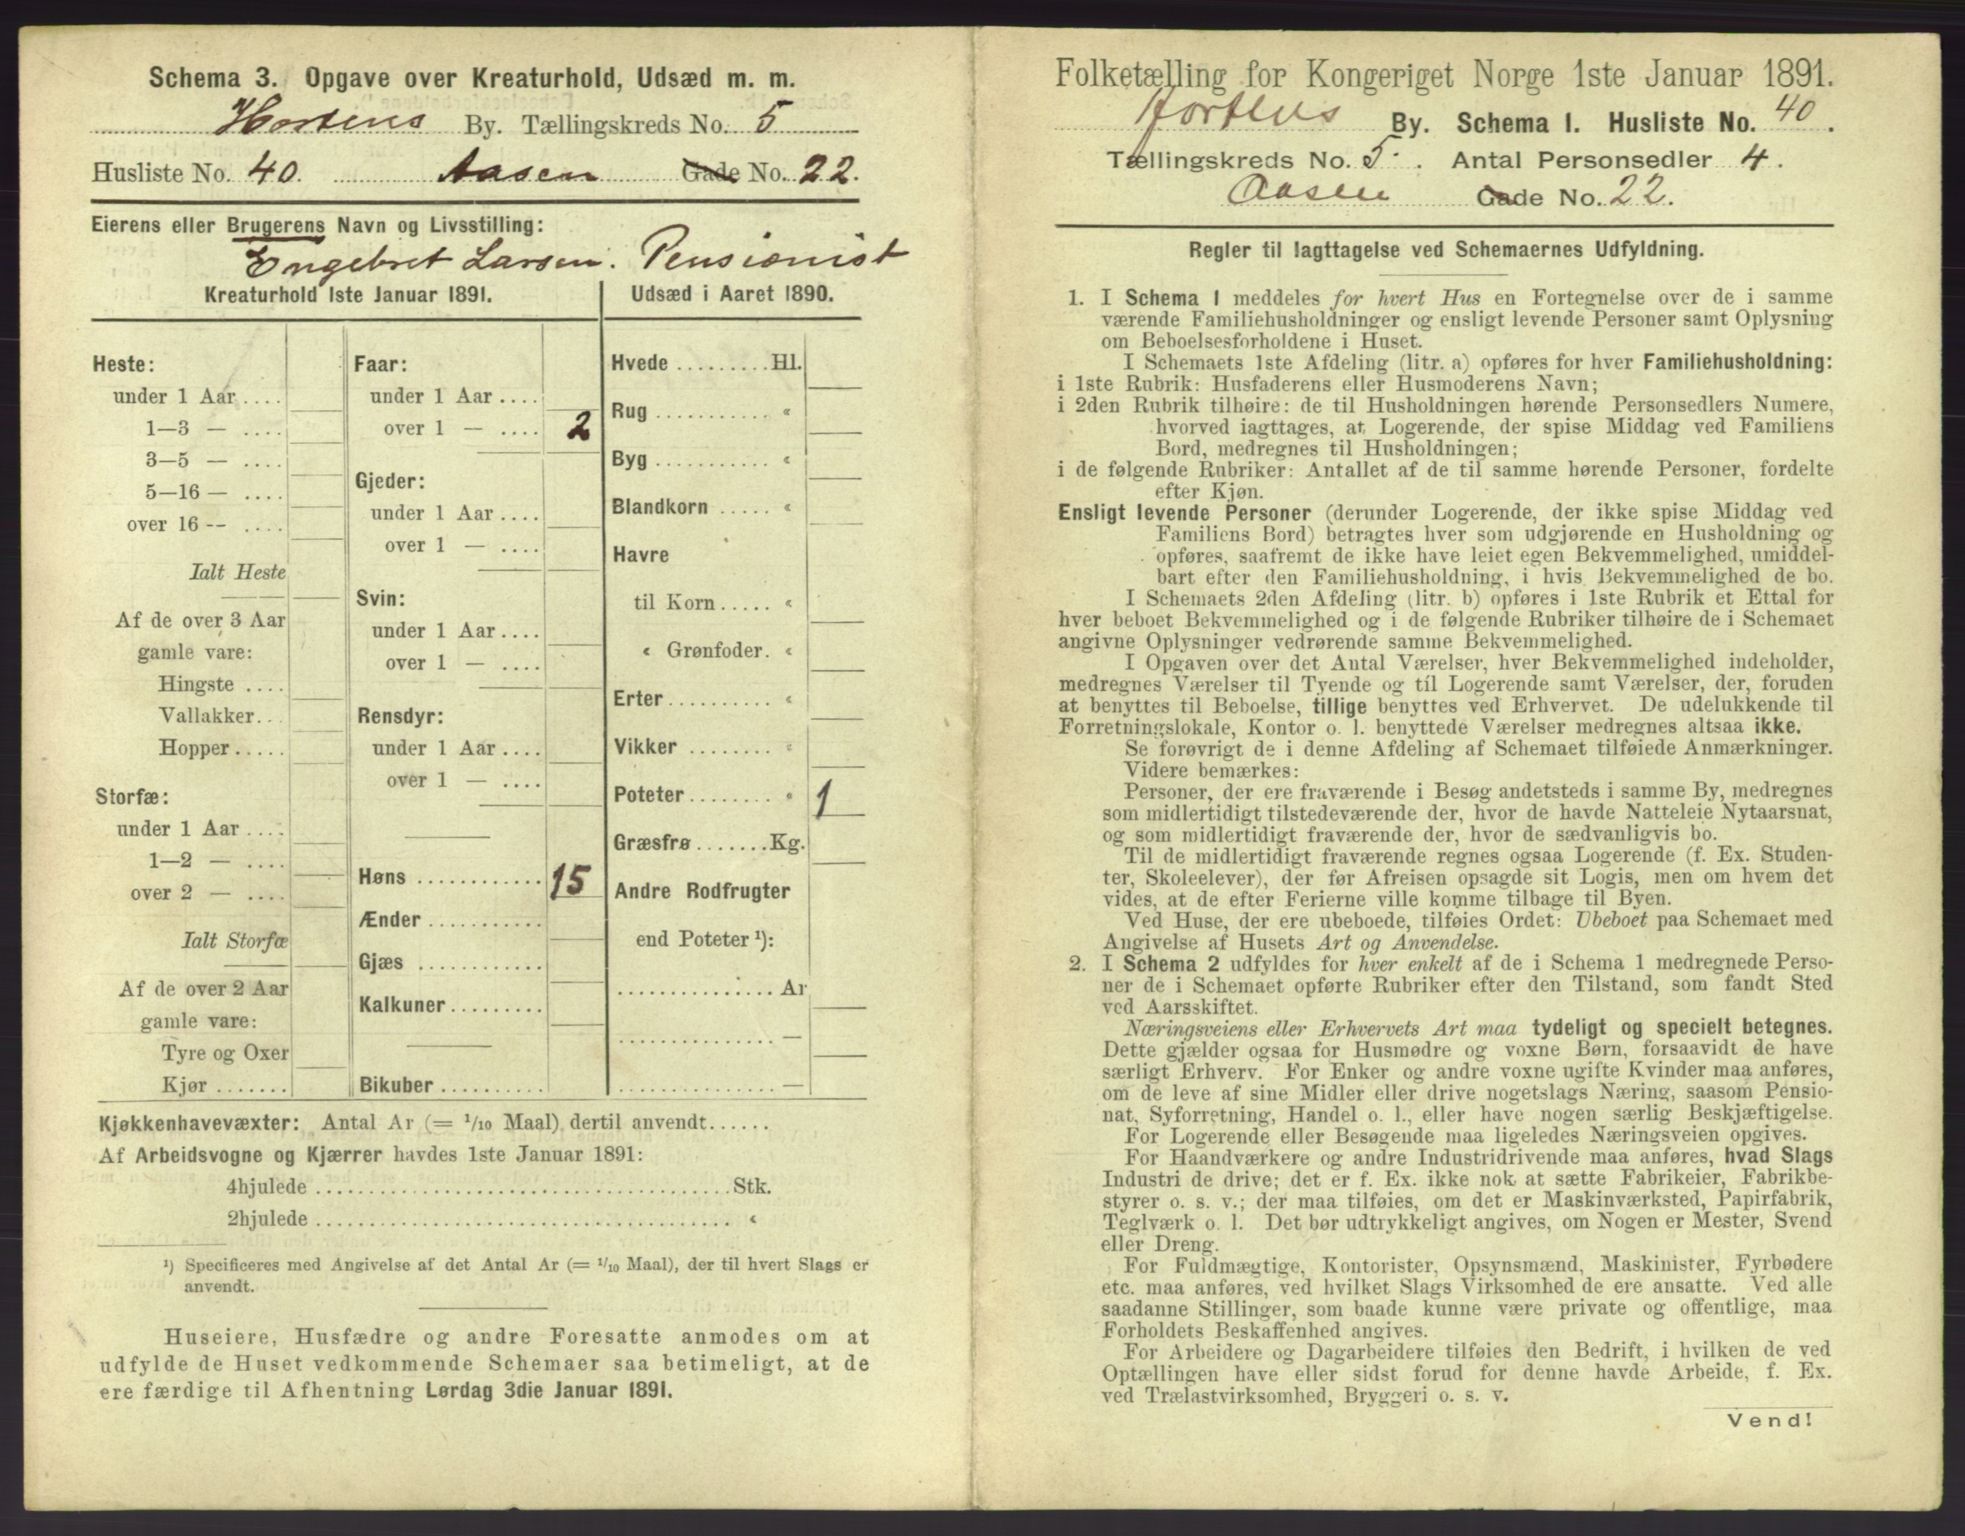 Schema 3. Opgave over Kreaturhold, Udsæd m. m.
Hortens By. Tællingskreds No. 5
Husliste No. 40. Aasen Gade No. 22.
Eierens eller Brugerens Navn og Livsstilling:
Engebret Larsen. Pensionist
Kreaturhold 1ste Januar 1891.
Heste:
under 1 Aar ....
1—3 — ....
3—5 — ....
5—16 — ....
over 16 -- ....
Ialt Heste
Af de over 3 Aar
gamle vare:
Hingste ....
Vallakker...
Hopper .....
Storfæ:
under 1 Aar ....
1—2 — ....
over 2 — ....
Ialt Storfæ
Af de over 2 Aar
gamle vare:
Tyre og Oxer
Kjør .......
Faar:
under 1 Aar ....
over 1 — .... 2
Gjeder:
under 1 Aar ....
over 1 — ....
Svin:
under 1 Aar ....
over 1 — ....
Rensdyr:
under 1 Aar ....
over 1 — ....
Høns ............ 15
Ænder ...........
Gjæs ............
Kalkuner .........
Bikuber ..........
Udsæd i Aaret 1890.
Hvede ......... Hl.
Rug ........... «
Byg ........... «
Blandkorn ..... «
Havre
til Korn ..... «
« Grønfoder. «
Erter .......... «
Vikker ........ «
Poteter ........ « 1
Græsfrø ....... Kg.
Andre Rodfrugter
end Poteter ¹):
............... Ar
............... —
............... —
Kjøkkenhavevæxter: Antal Ar (= ¹/₁₀ Maal) dertil anvendt......
Af Arbeidsvogne og Kjærrer havdes 1ste Januar 1891:
4hjulede ....................................... Stk.
2hjulede ....................................... «
¹) Specificeres med Angivelse af det Antal Ar (= ¹/₁₀ Maal), der til hvert Slags er
anvendt.
Huseiere, Husfædre og andre Foresatte anmodes om at
udfylde de Huset vedkommende Schemaer saa betimeligt, at de
ere færdige til Afhentning Lørdag 3die Januar 1891.
Folketælling for Kongeriget Norge 1ste Januar 1891.
Hortens By. Schema 1. Husliste No. 40.
Tællingskreds No. 5. Antal Personsedler 4.
Aasen Gade No. 22.
Regler til Iagttagelse ved Schemaernes Udfyldning.
1. I Schema 1 meddeles for hvert Hus en Fortegnelse over de i samme
værende Familiehusholdninger og ensligt levende Personer samt Oplysning
om Beboelsesforholdene i Huset.
I Schemaets 1ste Afdeling (litr. a) opføres for hver Familiehusholdning:
i 1ste Rubrik: Husfaderens eller Husmoderens Navn;
i 2den Rubrik tilhøire: de til Husholdningen hørende Personsedlers Numere,
hvorved iagttages, at Logerende, der spise Middag ved Familiens
Bord, medregnes til Husholdningen;
i de følgende Rubriker: Antallet af de til samme hørende Personer, fordelte
efter Kjøn.
Ensligt levende Personer (derunder Logerende, der ikke spise Middag ved
Familiens Bord) betragtes hver som udgjørende en Husholdning og
opføres, saafremt de ikke have leiet egen Bekvemmelighed, umiddel-
bart efter den Familiehusholdning, i hvis Bekvemmelighed de bo.
I Schemaets 2den Afdeling (litr. b) opføres i 1ste Rubrik et Ettal for
hver beboet Bekvemmelighed og i de følgende Rubriker tilhøire de i Schemaet
angivne Oplysninger vedrørende samme Bekvemmelighed.
I Opgaven over det Antal Værelser, hver Bekvemmelighed indeholder,
medregnes Værelser til Tyende og til Logerende samt Værelser, der, foruden
at benyttes til Beboelse, tillige benyttes ved Erhvervet. De udelukkende til
Forretningslokale, Kontor o. l. benyttede Værelser medregnes altsaa ikke.
Se forøvrigt de i denne Afdeling af Schemaet tilføiede Anmærkninger.
Videre bemærkes:
Personer, der ere fraværende i Besøg andetsteds i samme By, medregnes
som midlertidigt tilstedeværende der, hvor de havde Natteleie Nytaarsnat,
og som midlertidigt fraværende der, hvor de sædvanligvis bo.
Til de midlertidigt fraværende regnes ogsaa Logerende (f. Ex. Studen-
ter, Skoleelever), der før Afreisen opsagde sit Logis, men om hvem det
vides, at de efter Ferierne ville komme tilbage til Byen.
Ved Huse, der ere ubeboede, tilføies Ordet: Ubeboet paa Schemaet med
Angivelse af Husets Art og Anvendelse.
2. I Schema 2 udfyldes for hver enkelt af de i Schema 1 medregnede Perso-
ner de i Schemaet opførte Rubriker efter den Tilstand, som fandt Sted
ved Aarsskiftet.
Næringsveiens eller Erhvervets Art maa tydeligt og specielt betegnes.
Dette gjælder ogsaa for Husmødre og voxne Børn, forsaavidt de have
særligt Erhverv. For Enker og andre voxne ugifte Kvinder maa anføres,
om de leve af sine Midler eller drive nogetslags Næring, saasom Pensio-
nat, Syforretning, Handel o. l., eller have nogen særlig Beskjæftigelse.
For Logerende eller Besøgende maa ligeledes Næringsveien opgives.
For Haandværkere og andre Industridrivende maa anføres, hvad Slags
Industri de drive; det er f. Ex. ikke nok at sætte Fabrikeier, Fabrikbe-
styrer o. s. v.; der maa tilføies, om det er Maskinværksted, Papirfabrik,
Teglværk o. l. Det bør udtrykkeligt angives, om Nogen er Mester, Svend
eller Dreng.
For Fuldmægtige, Kontorister, Opsynsmænd, Maskinister, Fyrbødere
etc. maa anføres, ved hvilket Slags Virksomhed de ere ansatte. Ved alle
saadanne Stillinger, som baade kunne være private og offentlige, maa
Forholdets Beskaffenhed angives.
For Arbeidere og Dagarbeidere tilføies den Bedrift, i hvilken de ved
Optællingen have eller sidst forud for denne havde Arbeide, f. Ex.
ved Trælastvirksomhed, Bryggeri o. s. v.
Vend!